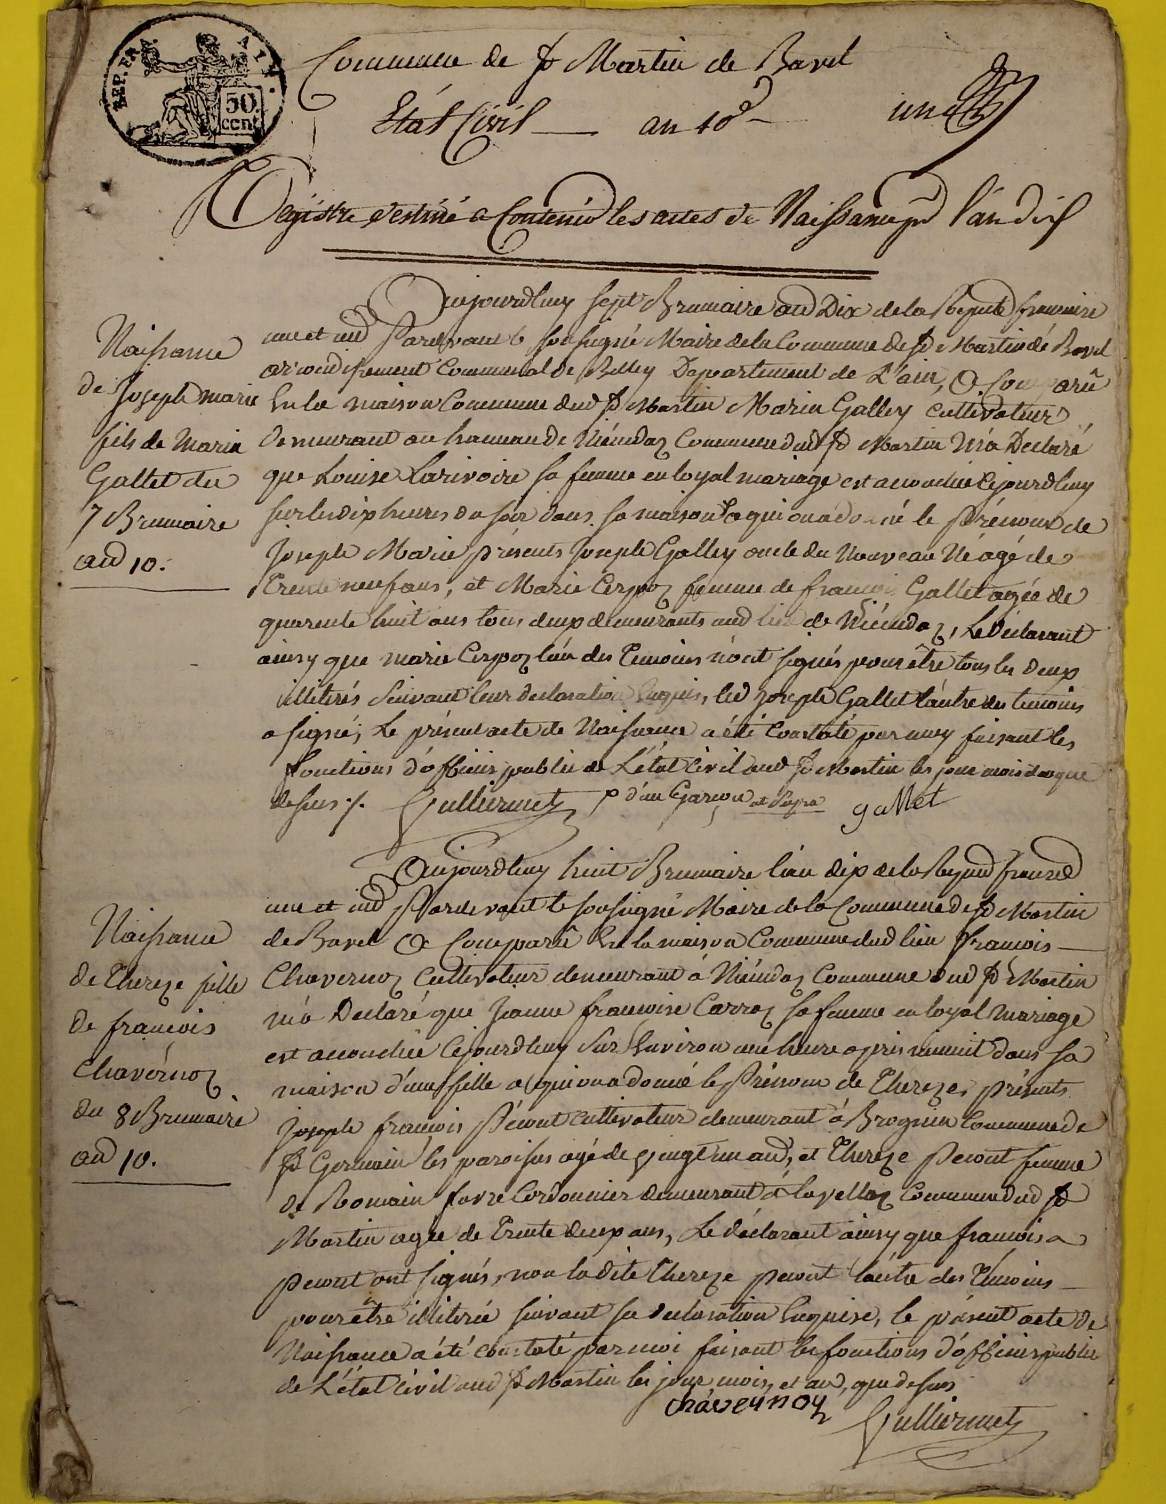 REP. FRA. 50. cent
Commune de St Martin de Bavel
État Civil — an 10e
un
Registre destiné a Contenir les actes de Naissance pr l'an dix
Naissance
de Joseph marie
fils de Marin
Gallet du
7 Brumaire
an 10.
Aujourdhuy sept Brumaire an Dix de la Repub francaise
une et ind Pardevant le soussigné Maire de la Commune de St Martin de Bavel
arrondissement Communal de Belley Departement de L'ain, a Comparû
En la maison Commune dud St Martin Marin Galley cultivateur
demeurant au hameau de Niémdoz Commune dud St Martin M'a Declaré
que Louise Larivoire sa femme en loyal mariage est accouchée cejourdhuy
sur les dix heures du soir dans sa maison a qui on a donné le Prénom de
Joseph Marie présents Joseph Galley oncle du Nouveau Né agé de
trente neuf ans, et Marie Cerpoz femme de francois Gallet agée de
quarente huit ans tous deux demeurants aud lieu de Niémdoz, Le Déclarant
ainsy que marie Cerpoz l'un des Temoins n'ont signés pour être tous les deux
illiterés suivant leur declaration Enquis, led Joseph Gallet l'autre des temoins
a signé, Le présent acte de Naissance a été Constaté par moy faisant les
fonctions d'officier public de L'état Civil aud St Martin les jour mois et an que
dessus ./. Gulliermet p d'un Garçon gallet
Naissance
de Thereze fille
de françois
Chavérnoz
du 8 Brumaire
an 10.
Aujourdhuy huit Brumaire l'an dix de la Repub francse
une et ind Pardevant le soussigné Maire de la Commune de St Martin
de Bavel a Comparû En la maison Commune dud lieu francois
Chavernoz Cultivateur demeurant á Niémdoz Commune dud St Martin
m'a Declaré que Jeanne francoise Carroz sa femme en loyal Mariage
est accouchée Cejourdhuy sur Lenviron une heure apres minuit dans sa
maison d'une fille a qui on a donné le Prénom de Thereze, présents
Joseph francois Pécout cultivateur demeurant à Brognin Commune de
St Germain les paroisses agé de vingt un ans, et Thereze Pecout femme
de Romain favre Cordonnier demeurant á lavellaz Commune dud St
Martin agée de Trente deux ans, Le déclarant ainsy que francois
pecout ont signés, non la dite Thereze pecout l'autre des Temoins
pour être illiteré suivant sa declaration Enquise, le présent acte de
Naissance a été constaté par moi faisant les fonctions d'officier public
de L'état civil aud St Martin les jour mois, et an, que dessus
chaveynoz Gulliermet